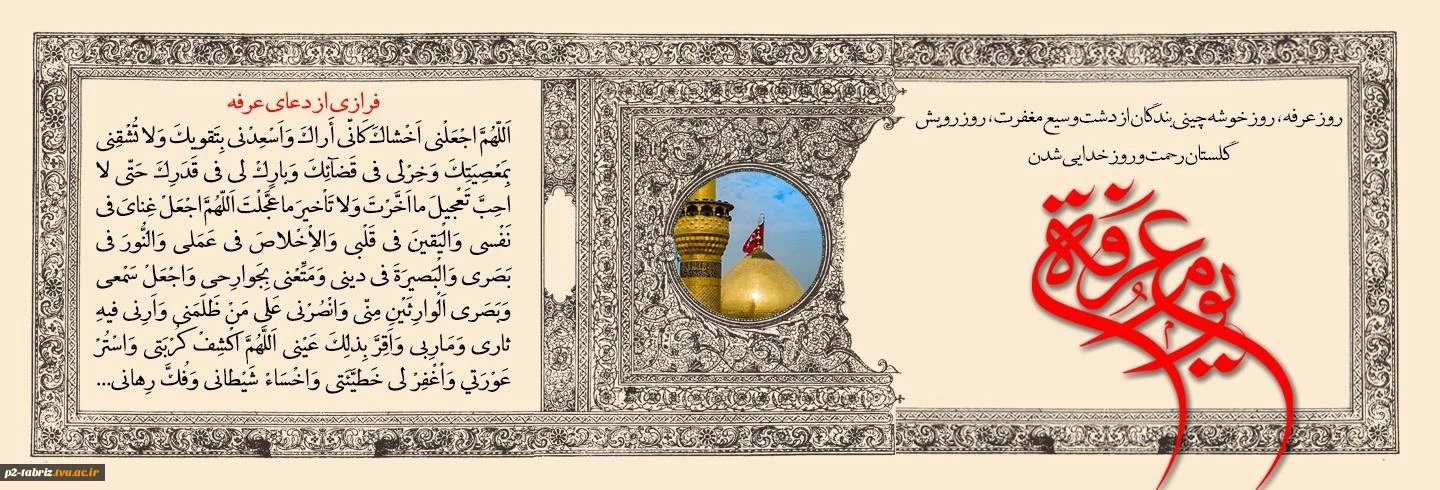 روز عرفه، روز خوشه چینی بندگان از دشت وسیع مغفرت، روز رویش
گلستان رحمت و روز خدایی شدن
یوم عرفة
فرازی از دعای عرفه
اَللّهُمَّ اجْعَلْنی اَخْشاكَ كَانّی أَراكَ وَاَسْعِدْنی بِتَقویكَ وَلا تُشْقِنی
بِمَعْصِیَتِكَ وَخِرْلی فی قَضآئِكَ وَبارِكْ لی فی قَدَرِكَ حَتّی لا
احِبَّ تَعْجیلَ ما اَخَّرْتَ وَلا تَاْخیرَ ما عَجَّلْتَ اَللّهُمَّ اجْعَلْ غِنایَ فی
نَفْسی وَالْیَقینَ فی قَلْبی وَالاِْخْلاصَ فی عَمَلی وَالنُّورَ فی
بَصَری وَالْبَصیرَةَ فی دینی وَمَتِّعْنی بِجَوارِحی وَاجْعَلْ سَمْعی
وَبَصَری اَلْوارِثَیْنِ مِنّی وَانْصُرْنی عَلی مَنْ ظَلَمَنی وَاَرِنی فیهِ
ثاری وَمَـارِبی وَاَقِرَّ بِذلِكَ عَیْنی اَللَّهُمَّ اكْشِفْ كُرْبَتی وَاسْتُرْ
عَوْرَتي وَاْغْفِرْ لی خَطیَّئَتی وَاخْسَاءْ شَیْطانی وَفُكَّ رِهانی...
p2-tabriz.tvu.ac.ir